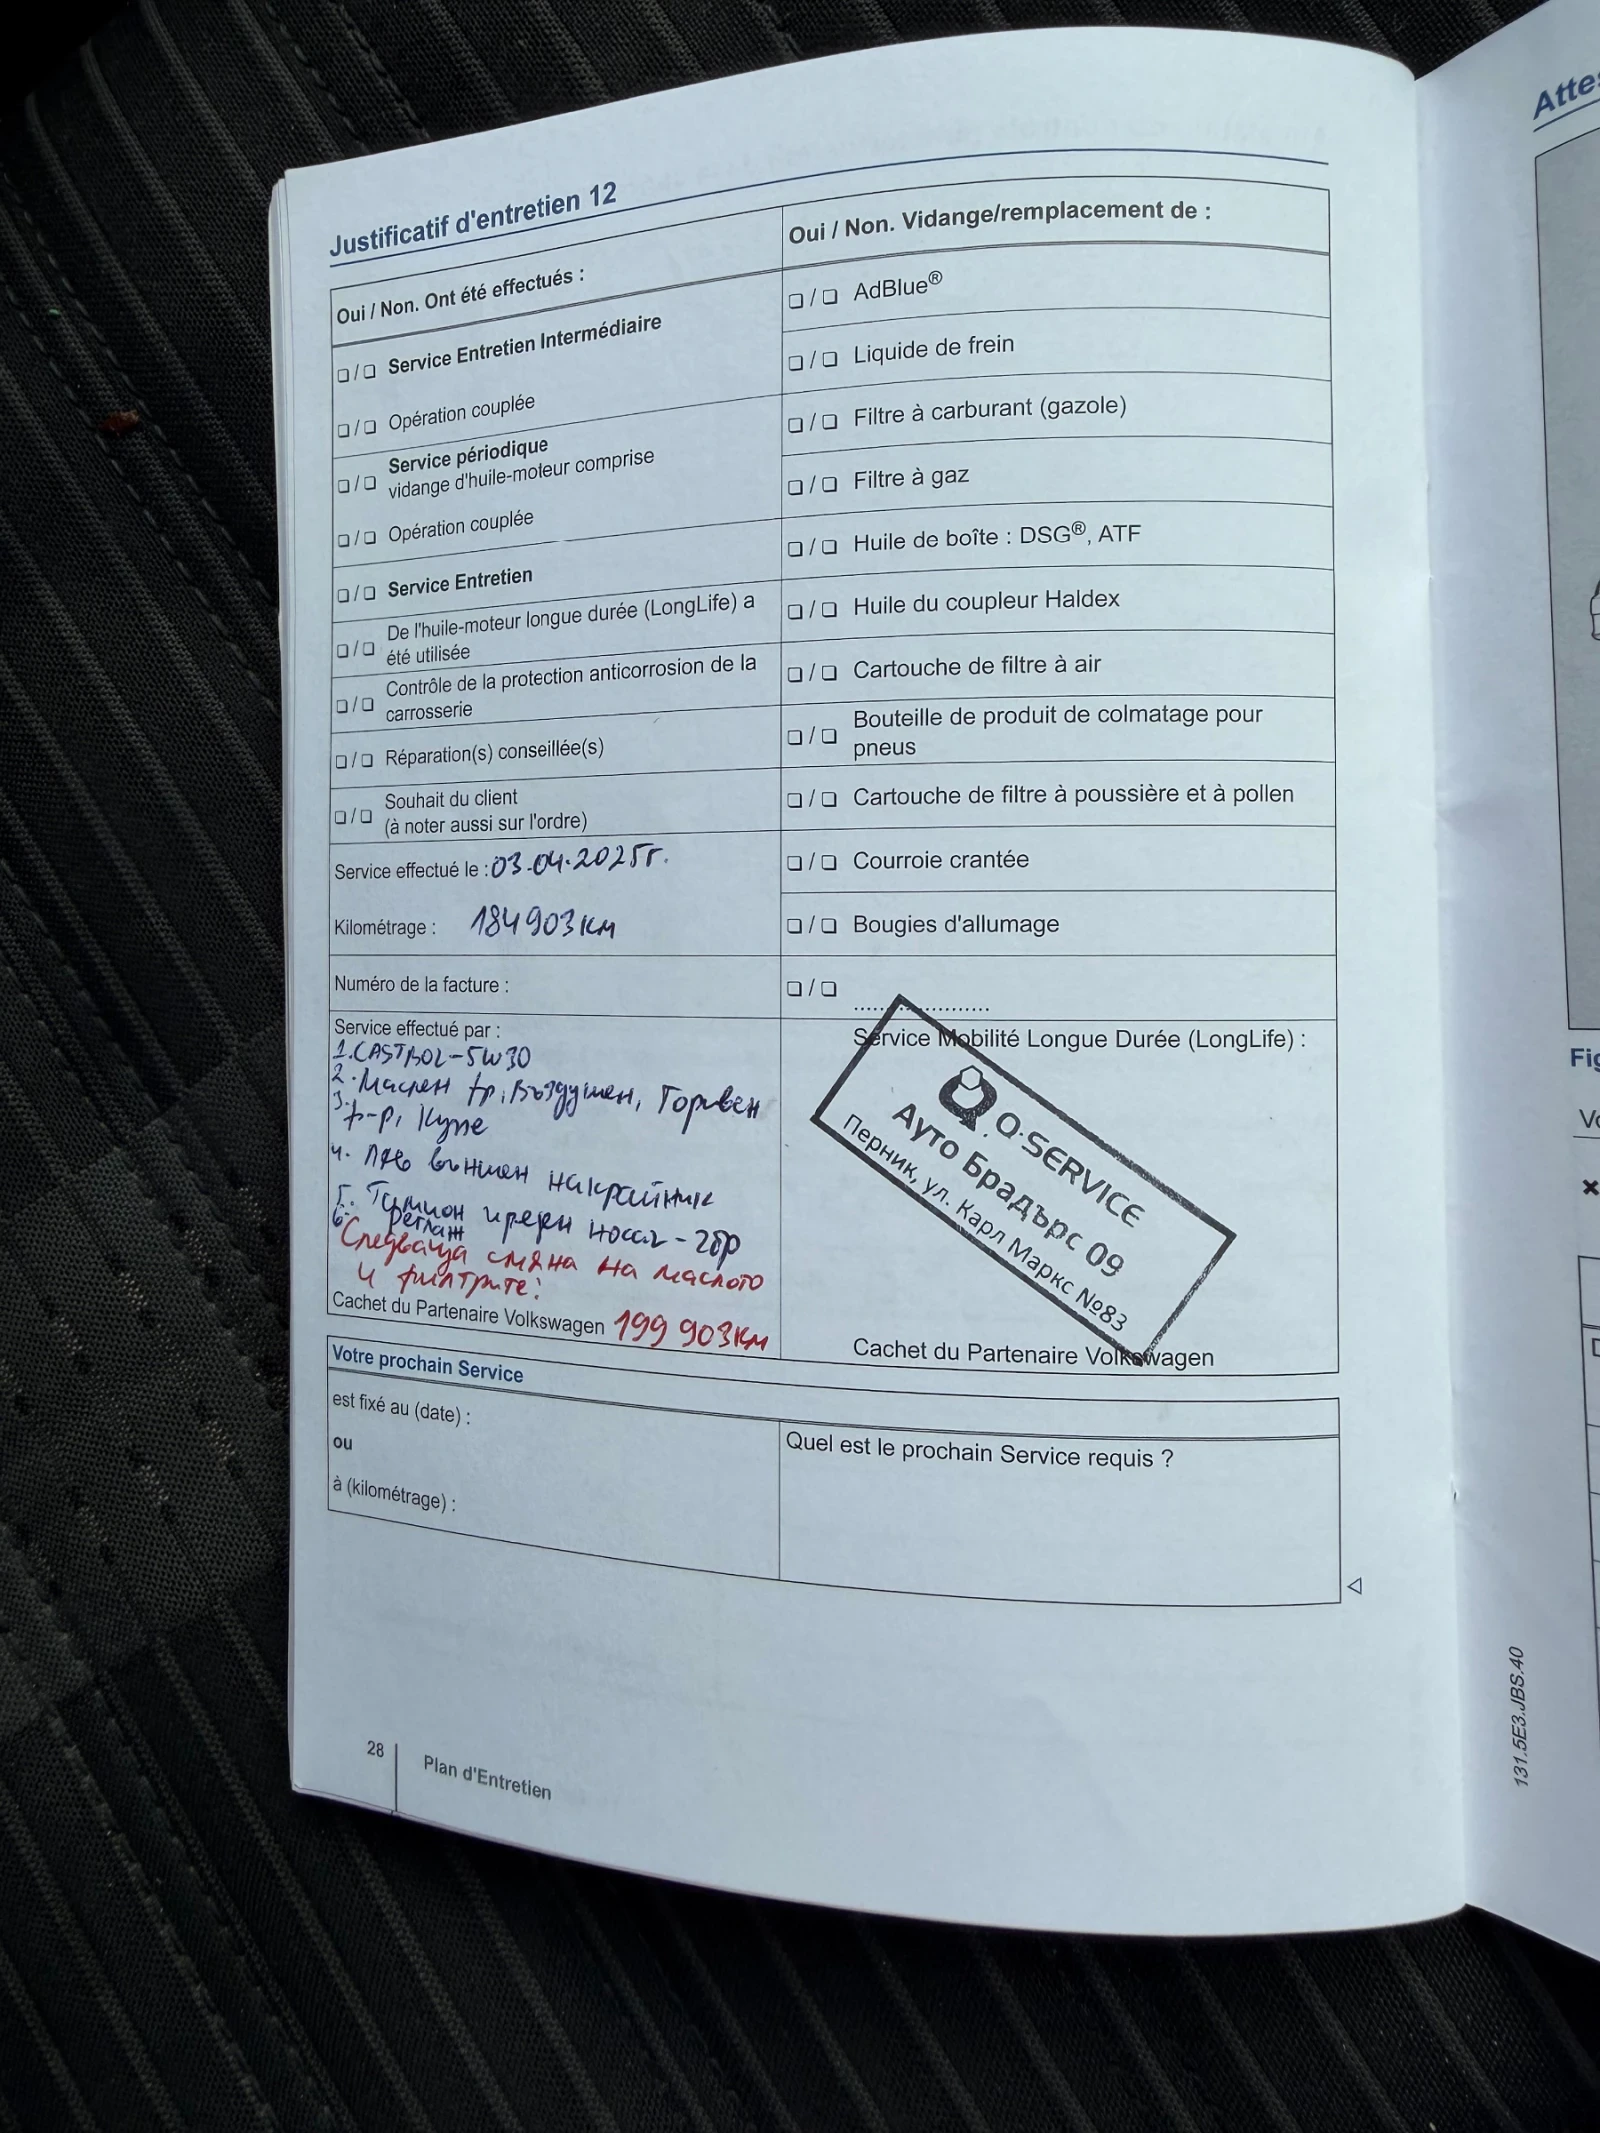 Justificatif d'entretien 12
Oui / Non. Ont été effectués :
❑ / ❑ Service Entretien Intermédiaire
❑ / ❑ Opération couplée
❑ / ❑ Service périodique
vidange d'huile-moteur comprise
❑ / ❑ Opération couplée
❑ / ❑ Service Entretien
❑ / ❑ De l'huile-moteur longue durée (LongLife) a
été utilisée
❑ / ❑ Contrôle de la protection anticorrosion de la
carrosserie
❑ / ❑ Réparation(s) conseillée(s)
❑ / ❑ Souhait du client
(à noter aussi sur l'ordre)
Service effectué le : 03.04.2025г.
Kilométrage : 184903км
Numéro de la facture :
Service effectué par :
1. CASTROL-5W30
2. Маслен фр, Въздушен, Горивен
3. ф-р, Купе
4. ляв външен накрайник
5. преден носач - 2бр
6. реглаж
Следваща смяна на маслото
и филтрите:
Cachet du Partenaire Volkswagen 199 903км
Oui / Non. Vidange/remplacement de :
❑ / ❑ AdBlue®
❑ / ❑ Liquide de frein
❑ / ❑ Filtre à carburant (gazole)
❑ / ❑ Filtre à gaz
❑ / ❑ Huile de boîte : DSG®, ATF
❑ / ❑ Huile du coupleur Haldex
❑ / ❑ Cartouche de filtre à air
❑ / ❑ Bouteille de produit de colmatage pour
pneus
❑ / ❑ Cartouche de filtre à poussière et à pollen
❑ / ❑ Courroie crantée
❑ / ❑ Bougies d'allumage
❑ / ❑ ....................
Service Mobilité Longue Durée (LongLife) :
Q·SERVICE
Ауто Брадърс 09
Перник, ул. Карл Маркс №83
Cachet du Partenaire Volkswagen
Votre prochain Service
est fixé au (date) :
ou
à (kilométrage) :
Quel est le prochain Service requis ?
28
Plan d'Entretien
131.5E3.JBS.40
Attes
Fig
Vo